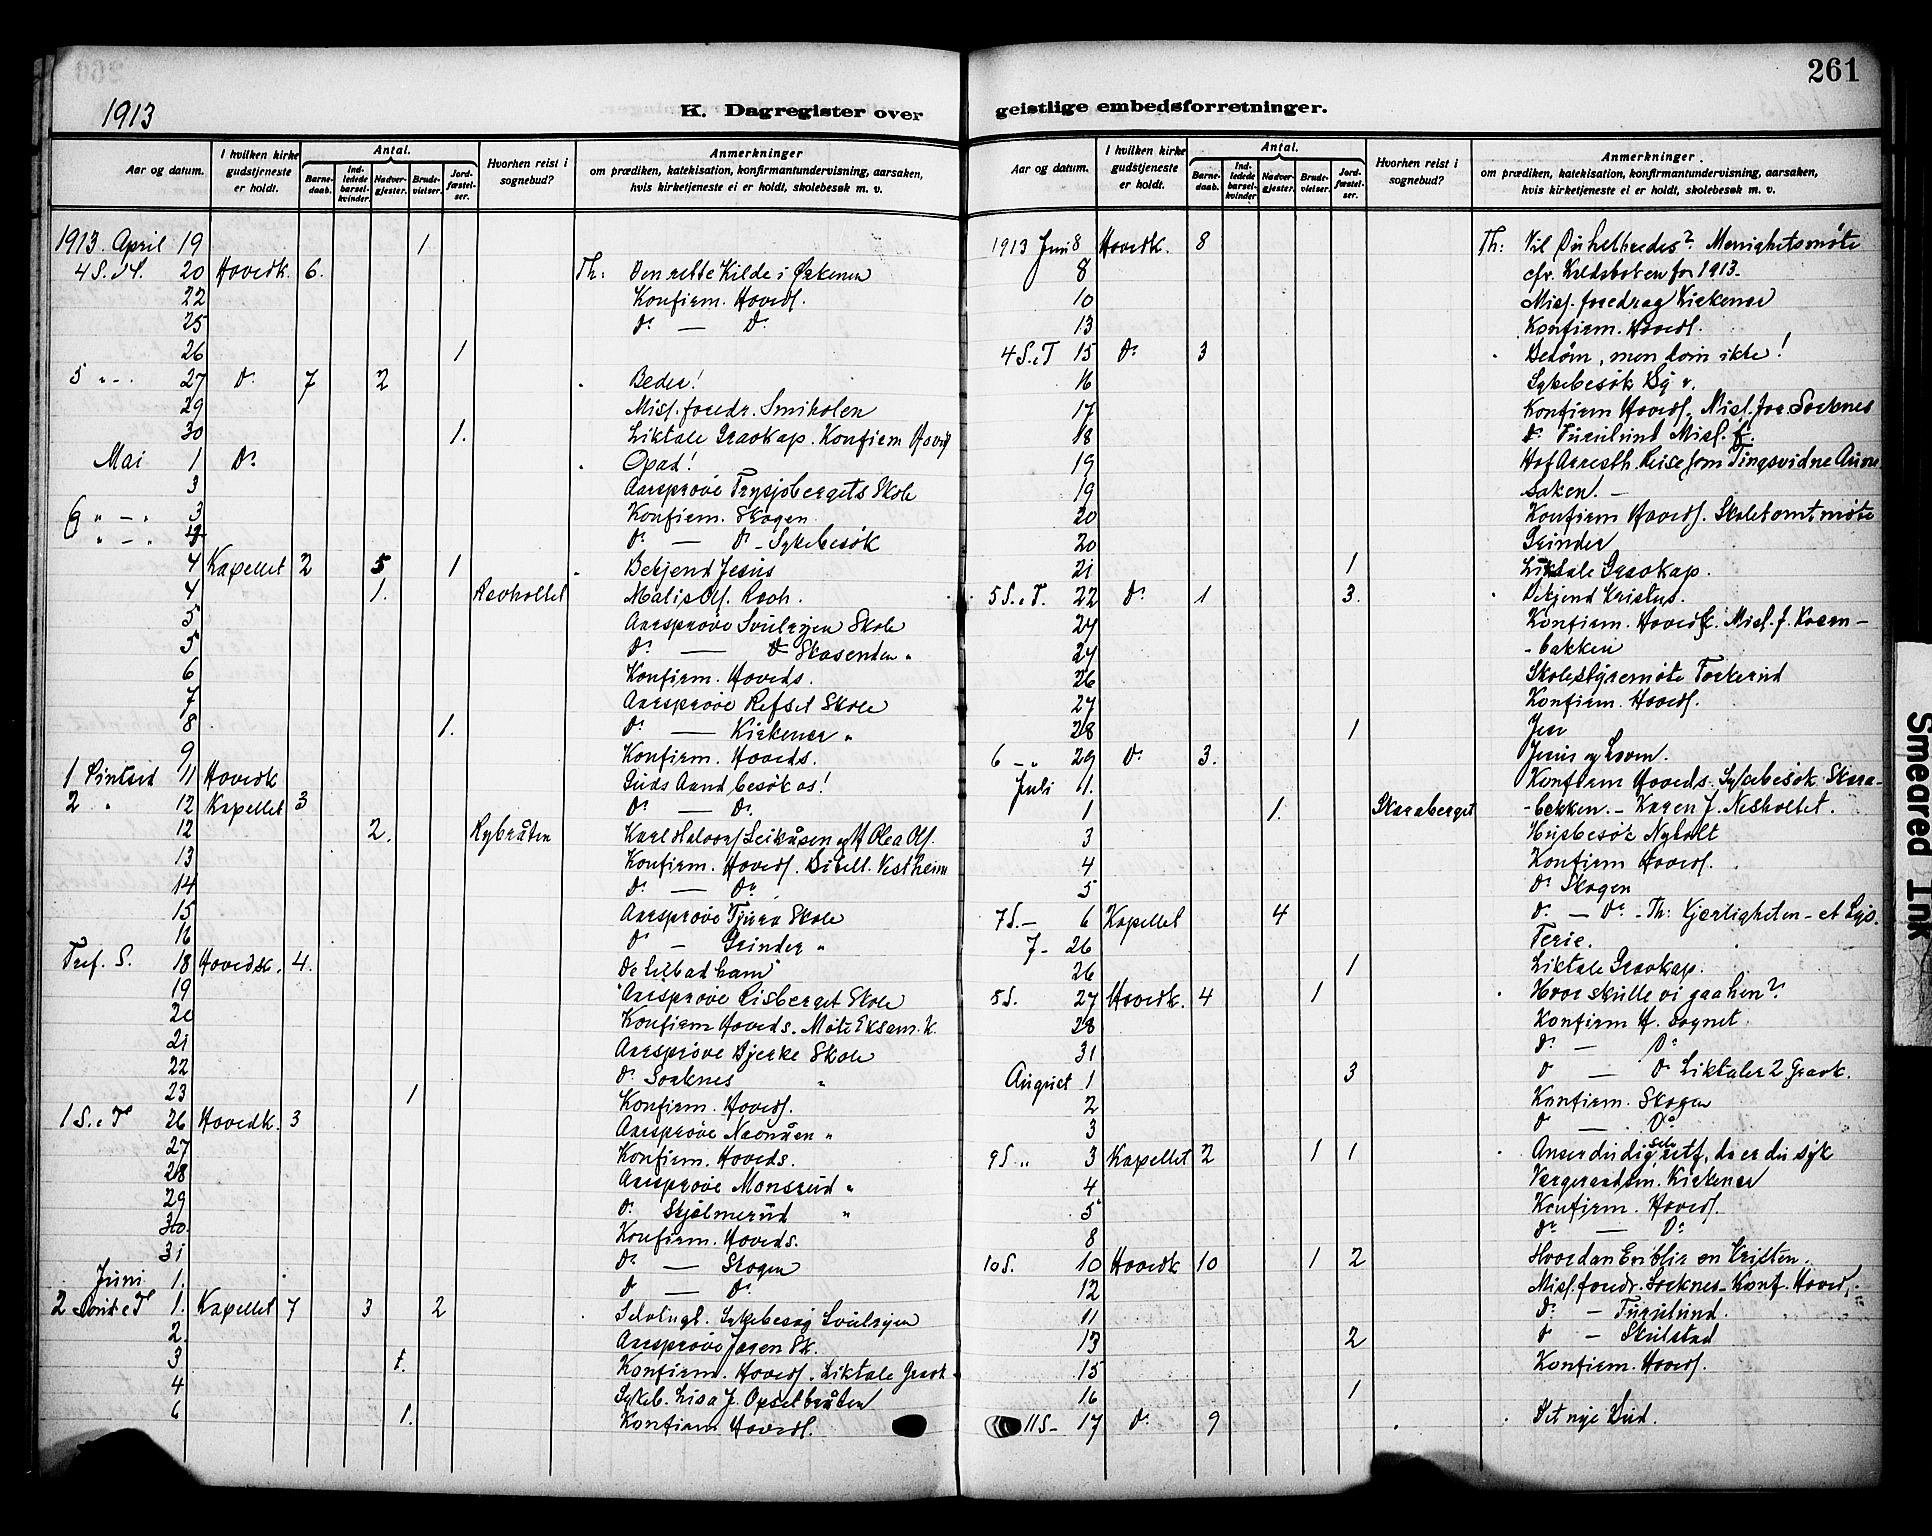 261
1913
K. Dagregister over geistlige embedsforretninger.
Aar og datum. I hvilken kirke gudstjeneste er holdt. Antal. Barnedaab. Indledede barselkvinder. Nadvergjester. Brudevielser. Jordfæstelser. Hvorhen reist i sognebud? Anmerkninger om prædiken, katekisation, konfirmantundervisning, aarsaken, hvis kirketjeneste ei er holdt, skolebesøk m. v.
1913. April 19 1
20 Hovedk. 6. Th: Den rette Kilde i Ørkenen
22 Konfirm. Hoveds.
25 Do — Do
26 1
5 " - " 27 Do 7 2 Beder!
29 Miss. foredr.
30 1. Liktale Gravkap. Konfirm Hoved
Mai 1 Do Opad!
3 Aarsprøve Trysjøbergets Skole
6 " - " 3 Konfirm. Skogen
" - " Do — Do - Sykebesøk
4 Kapellet 2 5 1 Bekjend Jesus
4 1.
5 Aarsprøve Svulrijen Skole
5 Do — Do Skasenden "
6 Konfirm. Hoveds.
7 Aarsprøve Refset Skole
8 1. Do — Kirkener "
9 Konfirm. Hoveds.
1 Pintsed 11 Hovedk Guds Aand besøk os!
2 " 12 Kapellet 3 Do — Do
12 2. Rybråten
13 Konfirm. Hoveds. Vestheim
14 Do — Do
15 Aarsprøve Tjura Skole
16 Do — Grinder "
Tref. S. 18 Hovedsk. 4. De lilbad ham
19 Aarsprøve Risberget Skole
20 Konfirm Hoveds. Møte Eksam. k.
21 Aarsprøve Bjerke Skole
22 Do Sorknes "
23 1 Konfirm. Hoveds.
1 S. e T 26 Hovedk. 3 Aarsprøve Navnåen "
27 Konfirm. Hoveds.
28 Aarsprøve Monsrud "
29 Do Skjølmerud "
30 Konfirm. Hoveds.
31 Do — Skogen
Juni 1. Do Do
1. Kapellet 7 3 2 Sykebesøg Svulrijen
2. Aarsprøve Jaren Sk.
3 1. Konfirm. Hoveds. Liktale Gravk.
4 Sykeb. Lisa J. Opsetbråten
6 1. Konfirm Hoveds.
Aar og datum. I hvilken kirke gudstjeneste er holdt. Antal. Barnedaab. Indledede barselkvinder. Nadvergjester. Brudevielser. Jordfæstelser. Hvorhen reist i sognebud? Anmerkninger om prædiken, katekisation, konfirmantundervisning, aarsaken, hvis kirketjeneste ei er holdt, skolebesøk m. v.
1913 Juni 8 Hovedk. 8 Th: Vil Du helbredes? Menighetsmøte
8 cfr. Kaldsboken for 1913.
10 Miss. foredrag Kirkener
13 Konfirm. Hoveds.
4 S. e T 15 Do 3 Bedøm, men døm ikke!
16 Sykebesøk
17 Konfirm Hoveds. Miss. for Sorknes
18 Do Furulund Miss. f.
19 Reise som Tingsvidne
19 saken. —
20 Konfirm Hoveds. møte
20 Grinder
21 1 Liktale Gravkap.
5 S. e. T. 22 Do 1 3. Bekjend Kristus.
24 Konfirm. Hoveds. Miss. f.
24 -bakken
26 Skolestyremøte Torkerud
27 Konfirm. Hoveds.
28 1
6 - " 29 Do 3. Jesus og Loven.
Juli 1. Konfirm Hoveds. Sykebesøk Skara-
1 1. Skaraberget -bekken. - Karen J. Nesholtet.
3 Husbesøk Nyholt
4 Konfirm Hoveds.
5 Do Skogen
7 S. — 6 Kapellet 4 Do — Do - Th: Kjærligheten - et Lys.
7 - 26 Ferie.
26 1 Liktale Gravkap.
8 S. 27 Hovedk. 4 1 Hvor skulle vi gaa hen?
28 Konfirm H. sognet.
31 Do — Do
August 1 3 Do — Do Liktaler 2 Gravk.
2 Konfirm. Skogen
3 Do — Do
9 S " 3 Kapellet 2 1 1 Anser du dig selv retf., da er du syk
4 Vergeraadsm. Kirkener
5 Konfirm. Hoveds.
8 Do — Do
10 S. 10 Hovedk 10 1 2 Hvordan En blir en Kristen.
12 Miss. foredr. Sorknes - Konf. Hoved.
11 Do — Furulund.
13 2 Do — Skulstad
15 Konfirm. Hoveds.
16 1
11 S — 17 Do 9 Det nye Bud.
Smeared Ink